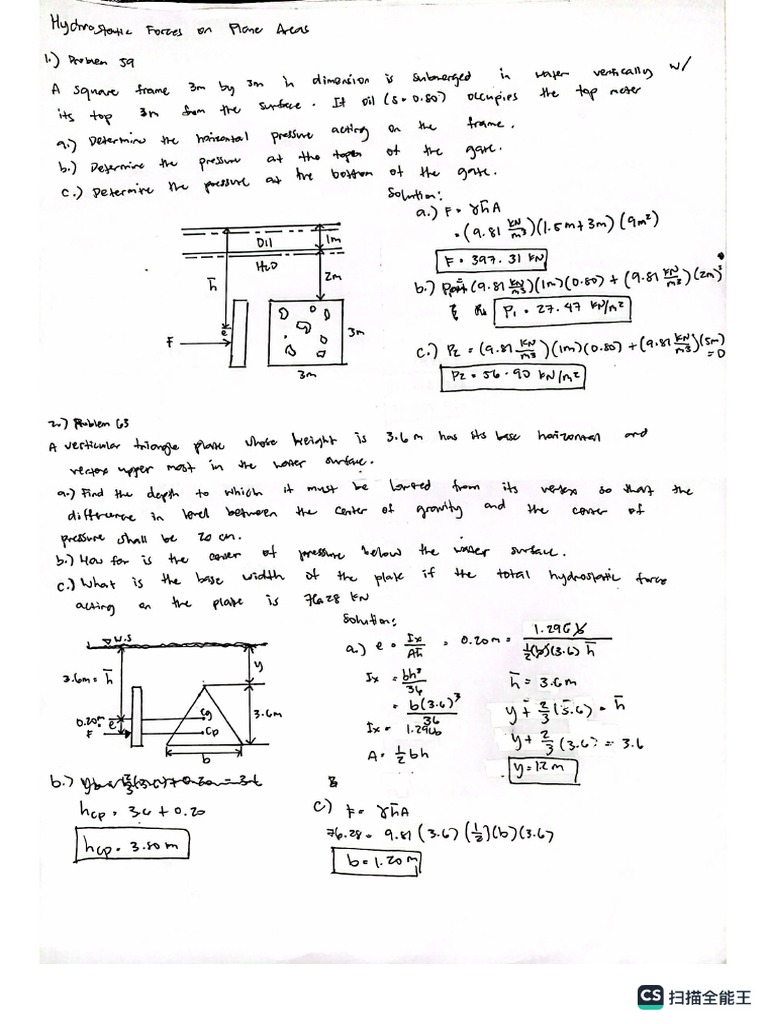 Hydrostatic Forces on Plane Areas
1.) Problem 59
A square frame 3m by 3m in dimension is submerged in water vertically w/
its top 3m from the surface. If oil (s=0.80) occupies the top meter
a.) Determine the horizontal pressure acting on the frame.
b.) Determine the pressure at the top of the gate.
c.) Determine the pressure at the bottom of the gate.
Solution:
a.) F = γh̄A
= (9.81 kN/m³)(1.5m+3m)(9m²)
F = 397.31 kN
b.) (9.81 kN/m³)(1m)(0.80) + (9.81 kN/m³)(2m)
P₁ = 27.47 kN/m²
c.) P₂ = (9.81 kN/m³)(1m)(0.80) + (9.81 kN/m³)(5m)
= 0
P₂ = 56.90 kN/m²
Oil
1m
H₂O
2m
h̄
e
F
3m
3m
2.) Problem 63
A verticular triangle plate whose height is 3.6m has its base horizontal and
vertex upper most in the water surface.
a.) Find the depth to which it must be lowered from its vertex so that the
difference in level between the center of gravity and the center of
pressure shall be 20 cm.
b.) How far is the center of pressure below the water surface.
c.) What is the base width of the plate if the total hydrostatic force
acting on the plate is 76.28 kN
Solution:
W.S
3.6m = h̄
y
0.20m = e
F
cg
cp
3.6m
b
a.) e = Ix/Ah̄ = 0.20m = 1.296b/½(b)(3.6) h̄
Ix = bh³/36
= b(3.6)³/36
Ix = 1.296b
A = ½bh
h̄ = 3.6m
y + 2/3(3.6) = h̄
y + 2/3(3.6) = 3.6
y = 1.2m
b.)
hcp = 3.6 + 0.20
hcp = 3.80 m
c) F = γh̄A
76.28 = 9.81 (3.6)(½)(b)(3.6)
b = 1.20m
CS 扫描全能王